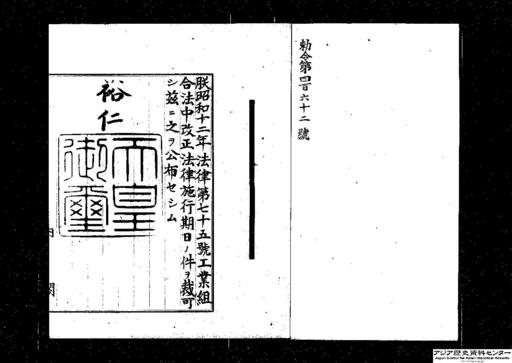 勅令第四百六十二號
朕昭和十二年法律第七十五號工業組
合法中改正法律施行期日ノ件ヲ裁可
シ茲ニ之ヲ公布セシム
裕仁
天皇
御璽
内
閣
アジア歴史資料センター
Japan Center for Asian Historical Records